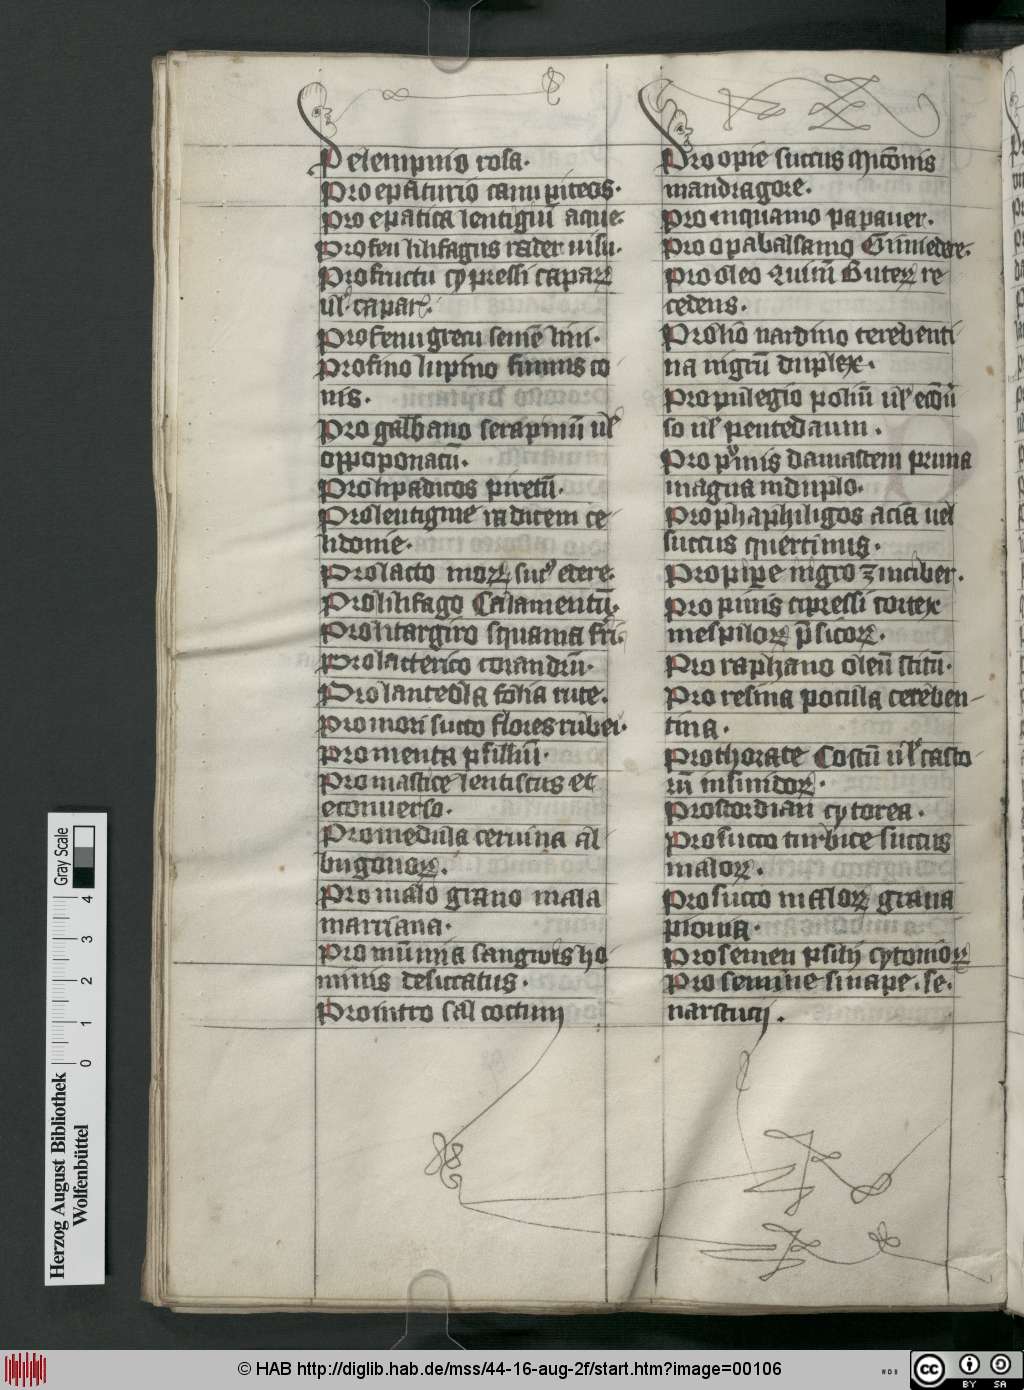 Pro elempnio rosa.
Pro epaturio camipiteos.
Pro epatica lentigiū aque.
Pro feu lilifagus rader uisu.
Pro fructu cypressi capaꝝ
ul' capar.
Pro fenugrecu semē lini.
Pro fimo lupino fimus co
nis.
Pro galbano serapinū ul'
oppoponacū.
Pro lipadicos piretū.
Pro lentigine radicem ce
lidonie.
Pro lacto moꝝ suc' etere.
Pro lilifago Calamentū.
Pro litargiro squama fri.
Pro lacterico coriandrū.
Pro lanteola folia rute.
Pro mori succo flores rubei.
Pro menta psilliū.
Pro mastice lentiscus et
econuerso.
Pro medula ceruina al
bugonaꝝ.
Pro malo grano mala
marciana.
Pro mūmia sangwis ho
minis desiccatus.
Pro nitro sal coctum
Pro opie succus Miconis
mandragore.
Pro inquamo papauer.
Pro opabalsamo Gūmi edere.
Pro oleo Ricinū Buteꝝ re
cedens.
Pro lio nardino terebenti
na nigrū duplex.
Pro pulegio poliū ul' econu
so ul' pentedaum.
Pro pinis damascem pruna
magna in duplo.
Pro phaphiligos acia uel
succus quercinus.
Pro pipe nigro zinciber.
Pro pinis cipressi cortex
mespiloꝝ psicoꝝ.
Pro raphano oleū scitū.
Pro resina pocula tereben-
tina.
Pro thorate Costū ul' casto
rū in siindoꝝ.
Pro scordiari cytorea.
Pro succo turbice succus
maloꝝ.
Pro succo maloꝝ grana
pionia.
Pro semen psilii cytonioꝝ
Pro semine sinape. se.
narstucij.
Herzog August Bibliothek
Wolfenbüttel
Gray Scale
0 1 2 3 4
© HAB http://diglib.hab.de/mss/44-16-aug-2f/start.htm?image=00106
WDB
cc BY SA